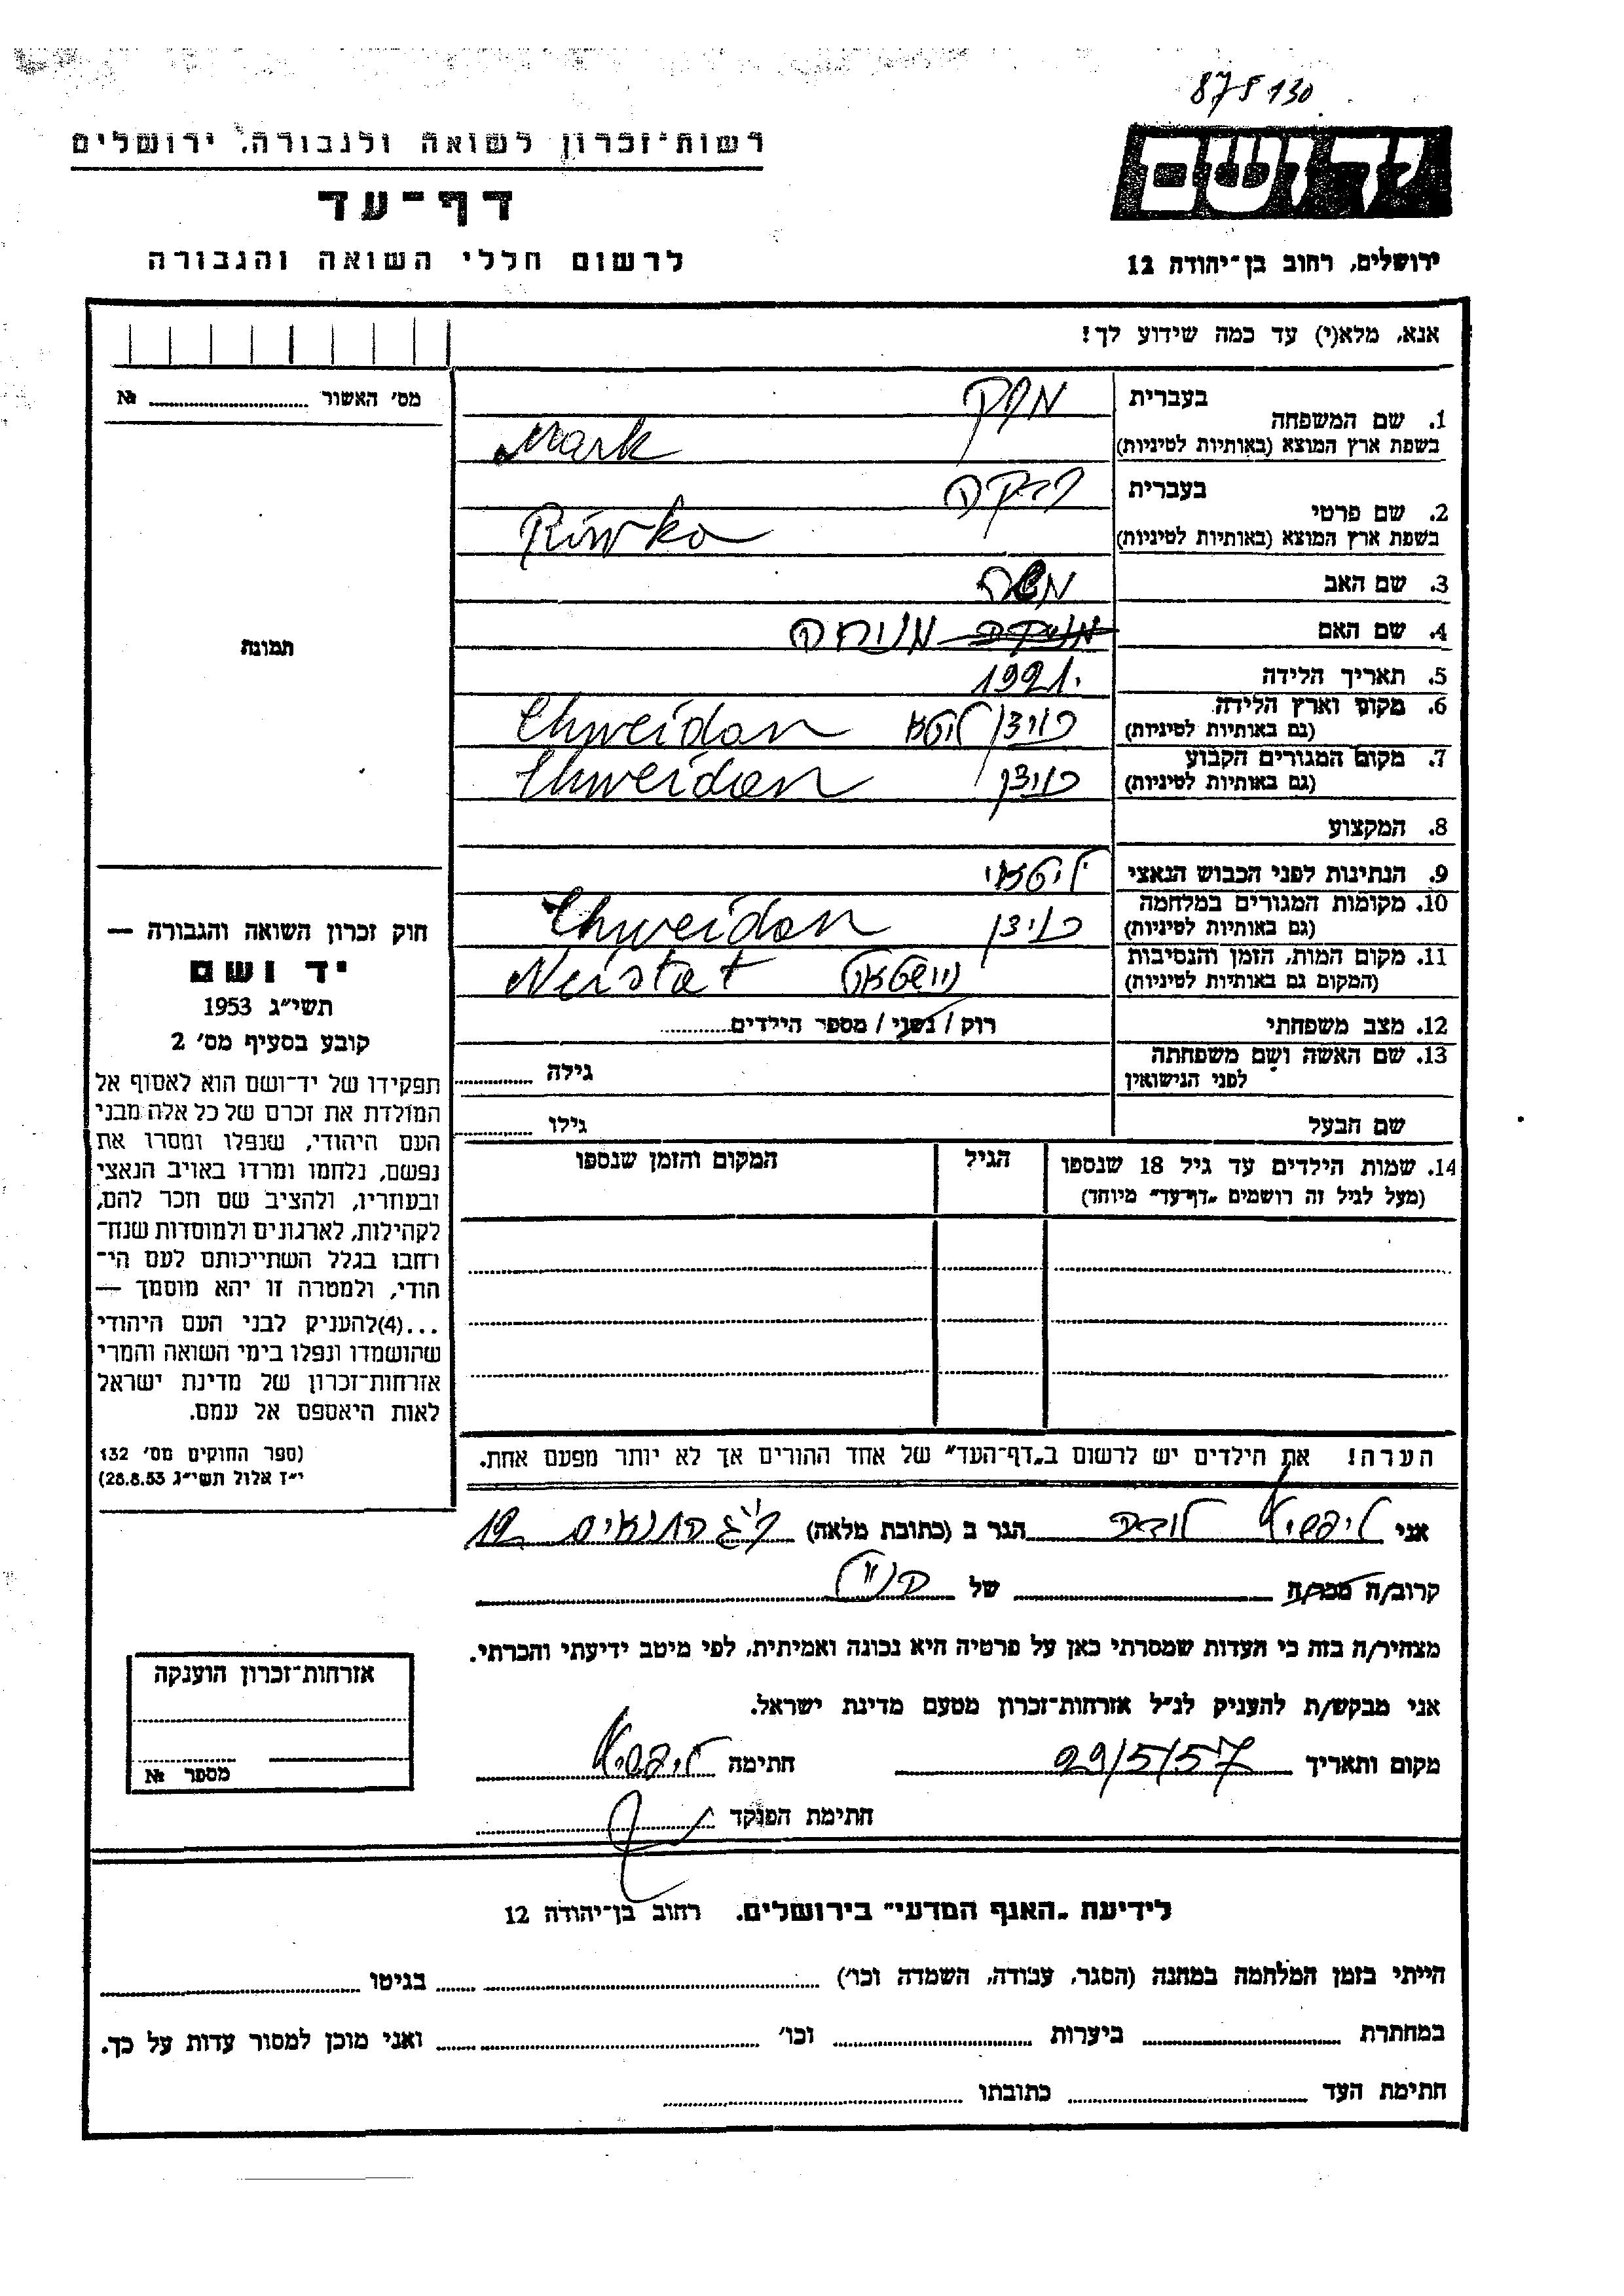 875130
יד ושם
ירושלים, רחוב בן־יהודה 12
רשות־זכרון לשואה ולגבורה, ירושלים
דף־עד
לרשום חללי השואה והגבורה
אנא, מלא(י) עד כמה שידוע לך!
מס׳ האשור № ....................
1. שם המשפחה
בעברית מרק
בשפת ארץ המוצא (באותיות לטיניות) Mark
2. שם פרטי
בעברית רבקה
בשפת ארץ המוצא (באותיות לטיניות) Riwka
3. שם האב משה
4. שם האם מנוחה
5. תאריך הלידה 1921.
6. מקום וארץ הלידה
(גם באותיות לטיניות) ליטא Chweidan
7. מקום המגורים הקבוע
(גם באותיות לטיניות) Chweidan
8. המקצוע
9. הנתינות לפני הכבוש הנאצי ליטאי
10. מקומות המגורים במלחמה
(גם באותיות לטיניות) Chweidan
11. מקום המות, הזמן והנסיבות
(המקום גם באותיות לטיניות) Neistat
12. מצב משפחתי רוק / נשוי / מספר הילדים............
13. שם האשה ושם משפחתה
לפני הנישואין גילה ............
שם הבעל גילו ............
14. שמות הילדים עד גיל 18 שנספו
(מעל לגיל זה רושמים „דף־עד״ מיוחד)
הגיל
המקום והזמן שנספו
תמונה
חוק זכרון השואה והגבורה —
יד ושם
תשי״ג 1953
קובע בסעיף מס׳ 2
תפקידו של יד־ושם הוא לאסוף אל
המולדת את זכרם של כל אלה מבני
העם היהודי, שנפלו ומסרו את
נפשם, נלחמו ומרדו באויב הנאצי
ובעוזריו, ולהציב שם וזכר להם,
לקהילות, לארגונים ולמוסדות שנח־
רחבו בגלל השתייכותם לעם הי־
הודי, ולמטרה זו יהא מוסמך —
...(4)להעניק לבני העם היהודי
שהושמדו ונפלו בימי השואה והמרי
אזרחות־זכרון של מדינת ישראל
לאות היאספם אל עמם.
(ספר החוקים מס׳ 132
י״ז אלול תשי״ג 28.8.53)
הערה! את הילדים יש לרשום ב„דף־העד״ של אחד ההורים אך לא יותר מפעם אחת.
אני ליפשיץ הגר ב (כתובת מלאה) התנאים 19
קרוב/ה מכר/ה ............ של הנ״ל
מצהיר/ה בזה כי העדות שמסרתי כאן על פרטיה היא נכונה ואמיתית, לפי מיטב ידיעתי והכרתי.
אני מבקש/ת להעניק לנ״ל אזרחות־זכרון מטעם מדינת ישראל.
מקום ותאריך 29/5/57 חתימה ליפשיץ
חתימת הפוקד
אזרחות־זכרון הוענקה
מספר №
לידיעת „האגף המדעי״ בירושלים, רחוב בן־יהודה 12
הייתי בזמן המלחמה במחנה (הסגר, עבודה, השמדה וכו׳) ............ בגיטו ............
במחתרת ............ ביערות ............ וכו׳ ............ ואני מוכן למסור עדות על כך.
חתימת העד ............ כתובתו ............